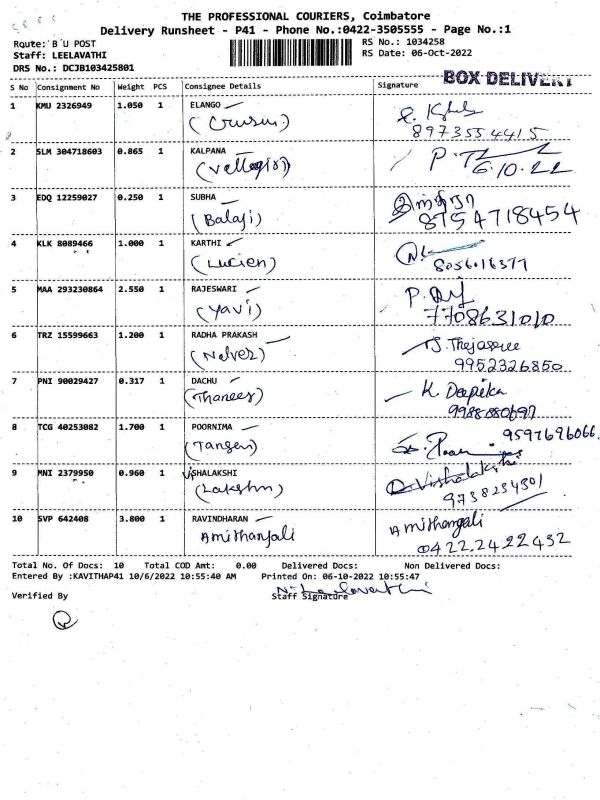 THE PROFESSIONAL COURIERS, Coimbatore
Delivery Runsheet - P41 - Phone No.:0422-3505555 - Page No.:1
Route: B U POST RS No.: 1034258
Staff: LEELAVATHI RS Date: 06-Oct-2022
DRS No.: DCJB103425801 BOX DELIVERY
S No Consignment No Weight PCS Consignee Details Signature
1 KMU 2326949 1.050 1 ELANGO
8973554415
2 SLM 304718603 0.865 1 KALPANA
6.10.22
3 EDQ 12259027 0.250 1 SUBHA
(Balaji) 8754718454
4 KLK 8089466 1.000 1 KARTHI
(Lucien) 8056018377
5 MAA 293230864 2.550 1 RAJESWARI
(Yavi) 7708631010
6 TRZ 15599663 1.200 1 RADHA PRAKASH
(Nelvez) S. Thejasree
9952326850
7 PNI 90029427 0.317 1 DACHU
(Thanees) K Deepika
9988880697
8 TCG 40253082 1.700 1 POORNIMA
(Tansen) 9597696066
9 MNI 2379950 0.960 1 VISHALAKSHI
(Lakshm) Vishalakshi
9738234301
10 SVP 642408 3.800 1 RAVINDHARAN
Amithanjali Amithangali
0422.2422432
Total No. Of Docs: 10 Total COD Amt: 0.00 Delivered Docs: Non Delivered Docs:
Entered By :KAVITHAP41 10/6/2022 10:55:40 AM Printed On: 06-10-2022 10:55:47
Verified By Staff Signature